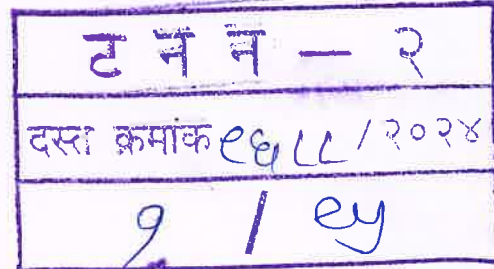 ट न न — २
दस्त क्रमांक ९६८८/२०२४
१ / ९५